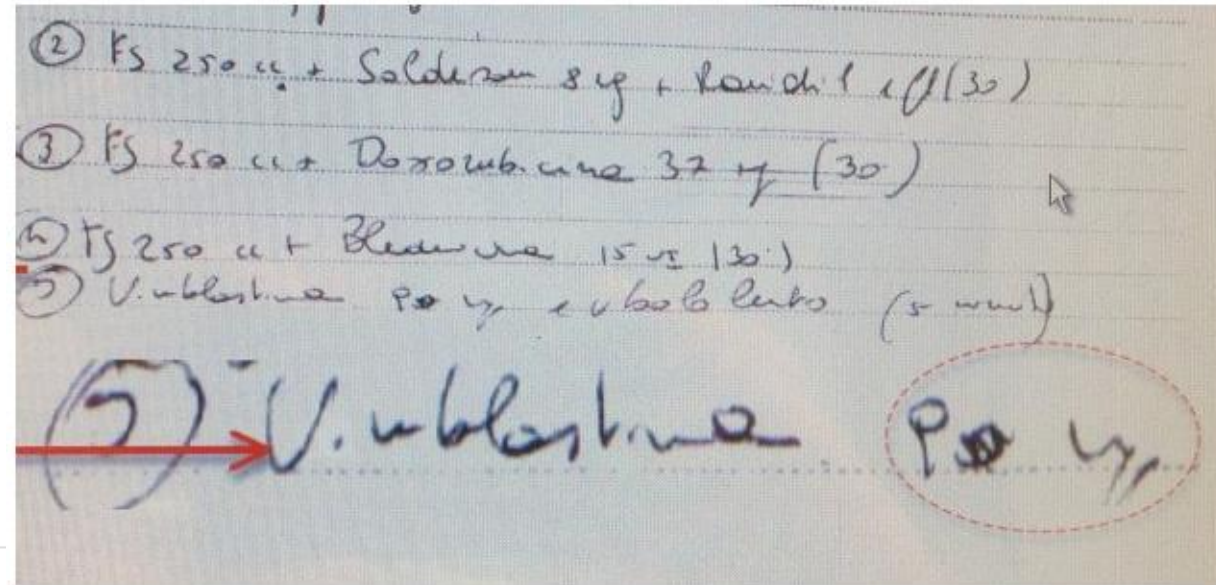 ② FS 250 cc + Soldesam 8 mg + Ranidil 1 (30)
③ FS 250 cc + Doxorubicina 37 mg (30)
④ FS 250 cc + Bleomicina 15 (30')
⑤ Vinblastina mg bolo lento (5 minuti)
⑤ Vinblastina mg